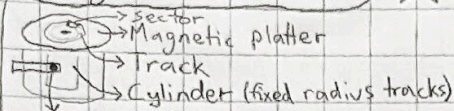 sector
Magnetic platter
Track
Cylinder (fixed radius tracks)